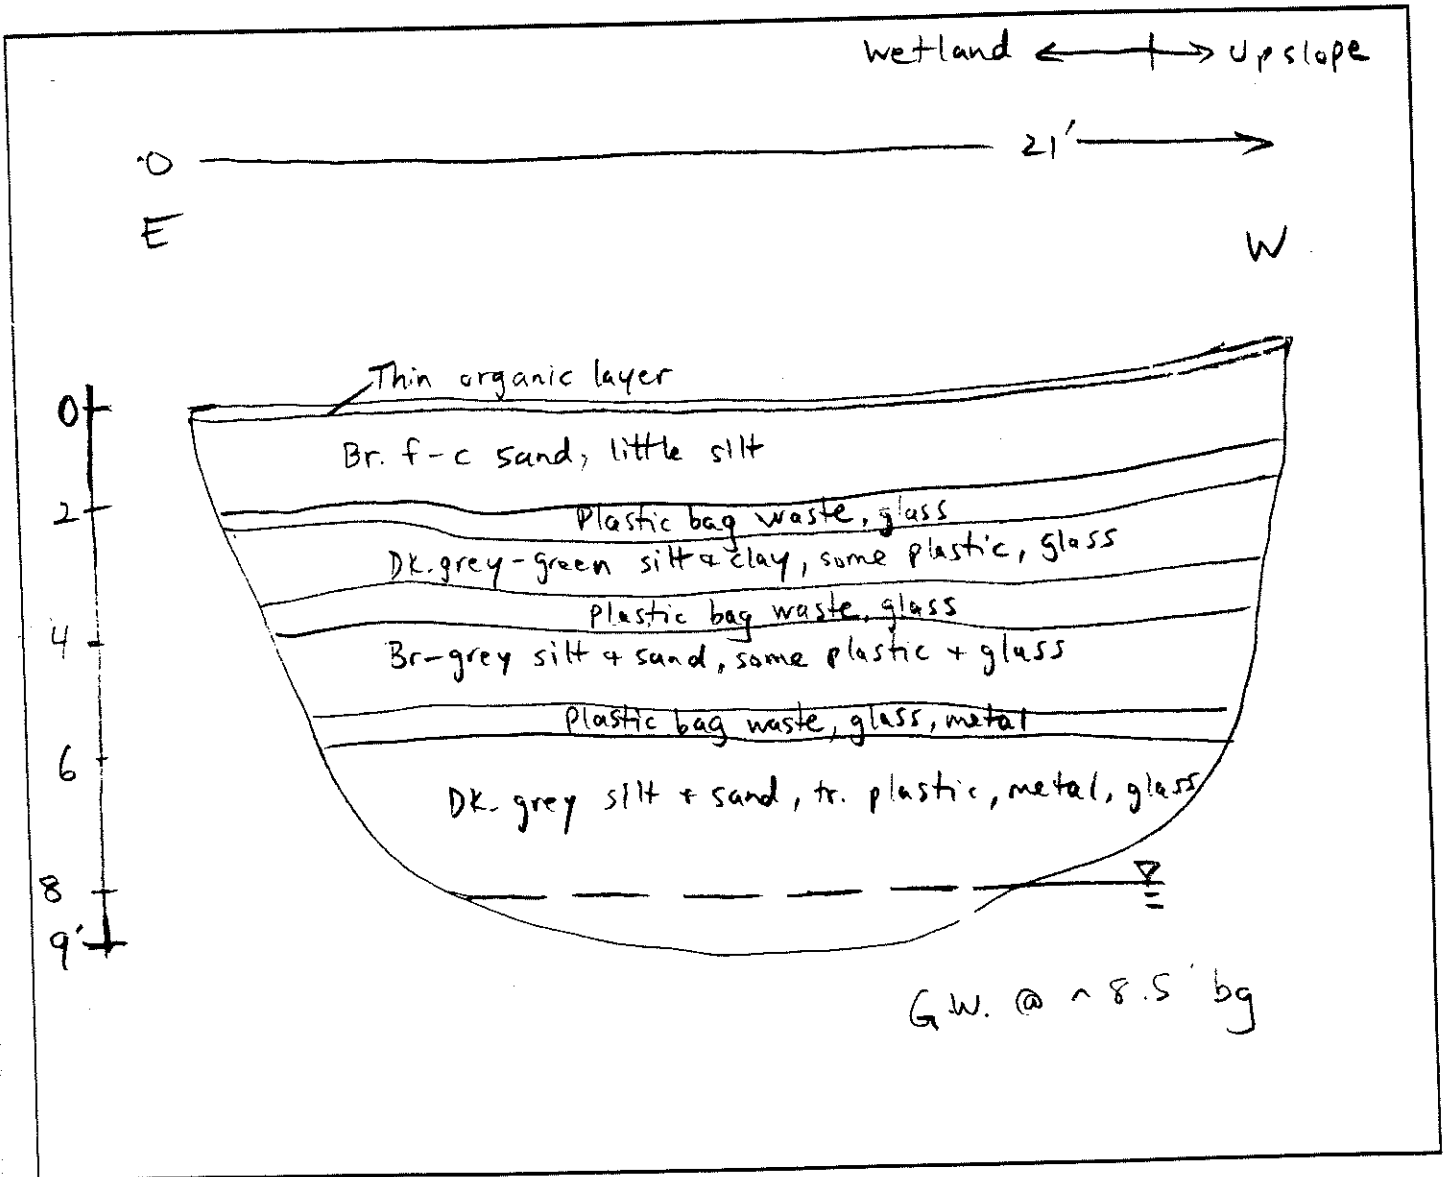 Wetland ←→ Upslope
0 21'
E W
Thin organic layer
0
Br. f-c sand, little silt
2
Plastic bag waste, glass
Dk. grey-green silt & clay, some plastic, glass
Plastic bag waste, glass
4
Br-grey silt & sand, some plastic + glass
Plastic bag waste, glass, metal
6
Dk. grey silt + sand, tr. plastic, metal, glass
8
9'
G.W. @ ~8.5' bg